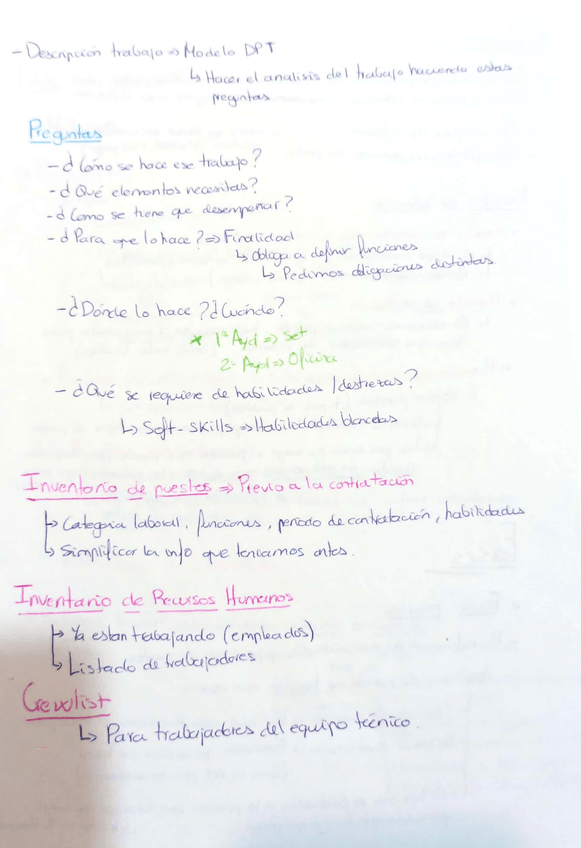 - Descripción trabajo => Modelo DPT
↳ Hacer el analisis del trabajo haciendo estas
preguntas
Preguntas
- ¿Cómo se hace ese trabajo?
- ¿Qué elementos necesitas?
- ¿Como se tiene que desempeñar?
- ¿Para que lo hace? => Finalidad
↳ obliga a definir funciones
↳ Pedimos obligaciones distintas
- ¿Dónde lo hace? ¿Cuándo?
* 1º Ayd => Set
2º Ayd => Oficina
- ¿Qué se requiere de habilidades / destrezas?
↳ Soft-skills => Habilidades blandas
Inventario de puestos => Previo a la contratación
↳ Categoria laboral, funciones, periodo de contratación, habilidades
↳ Simplificar la info que teníamos antes.
Inventario de Recursos Humanos
↳ Ya estan trabajando (empleados)
↳ Listado de trabajadores
Crewlist
↳ Para trabajadores del equipo técnico.